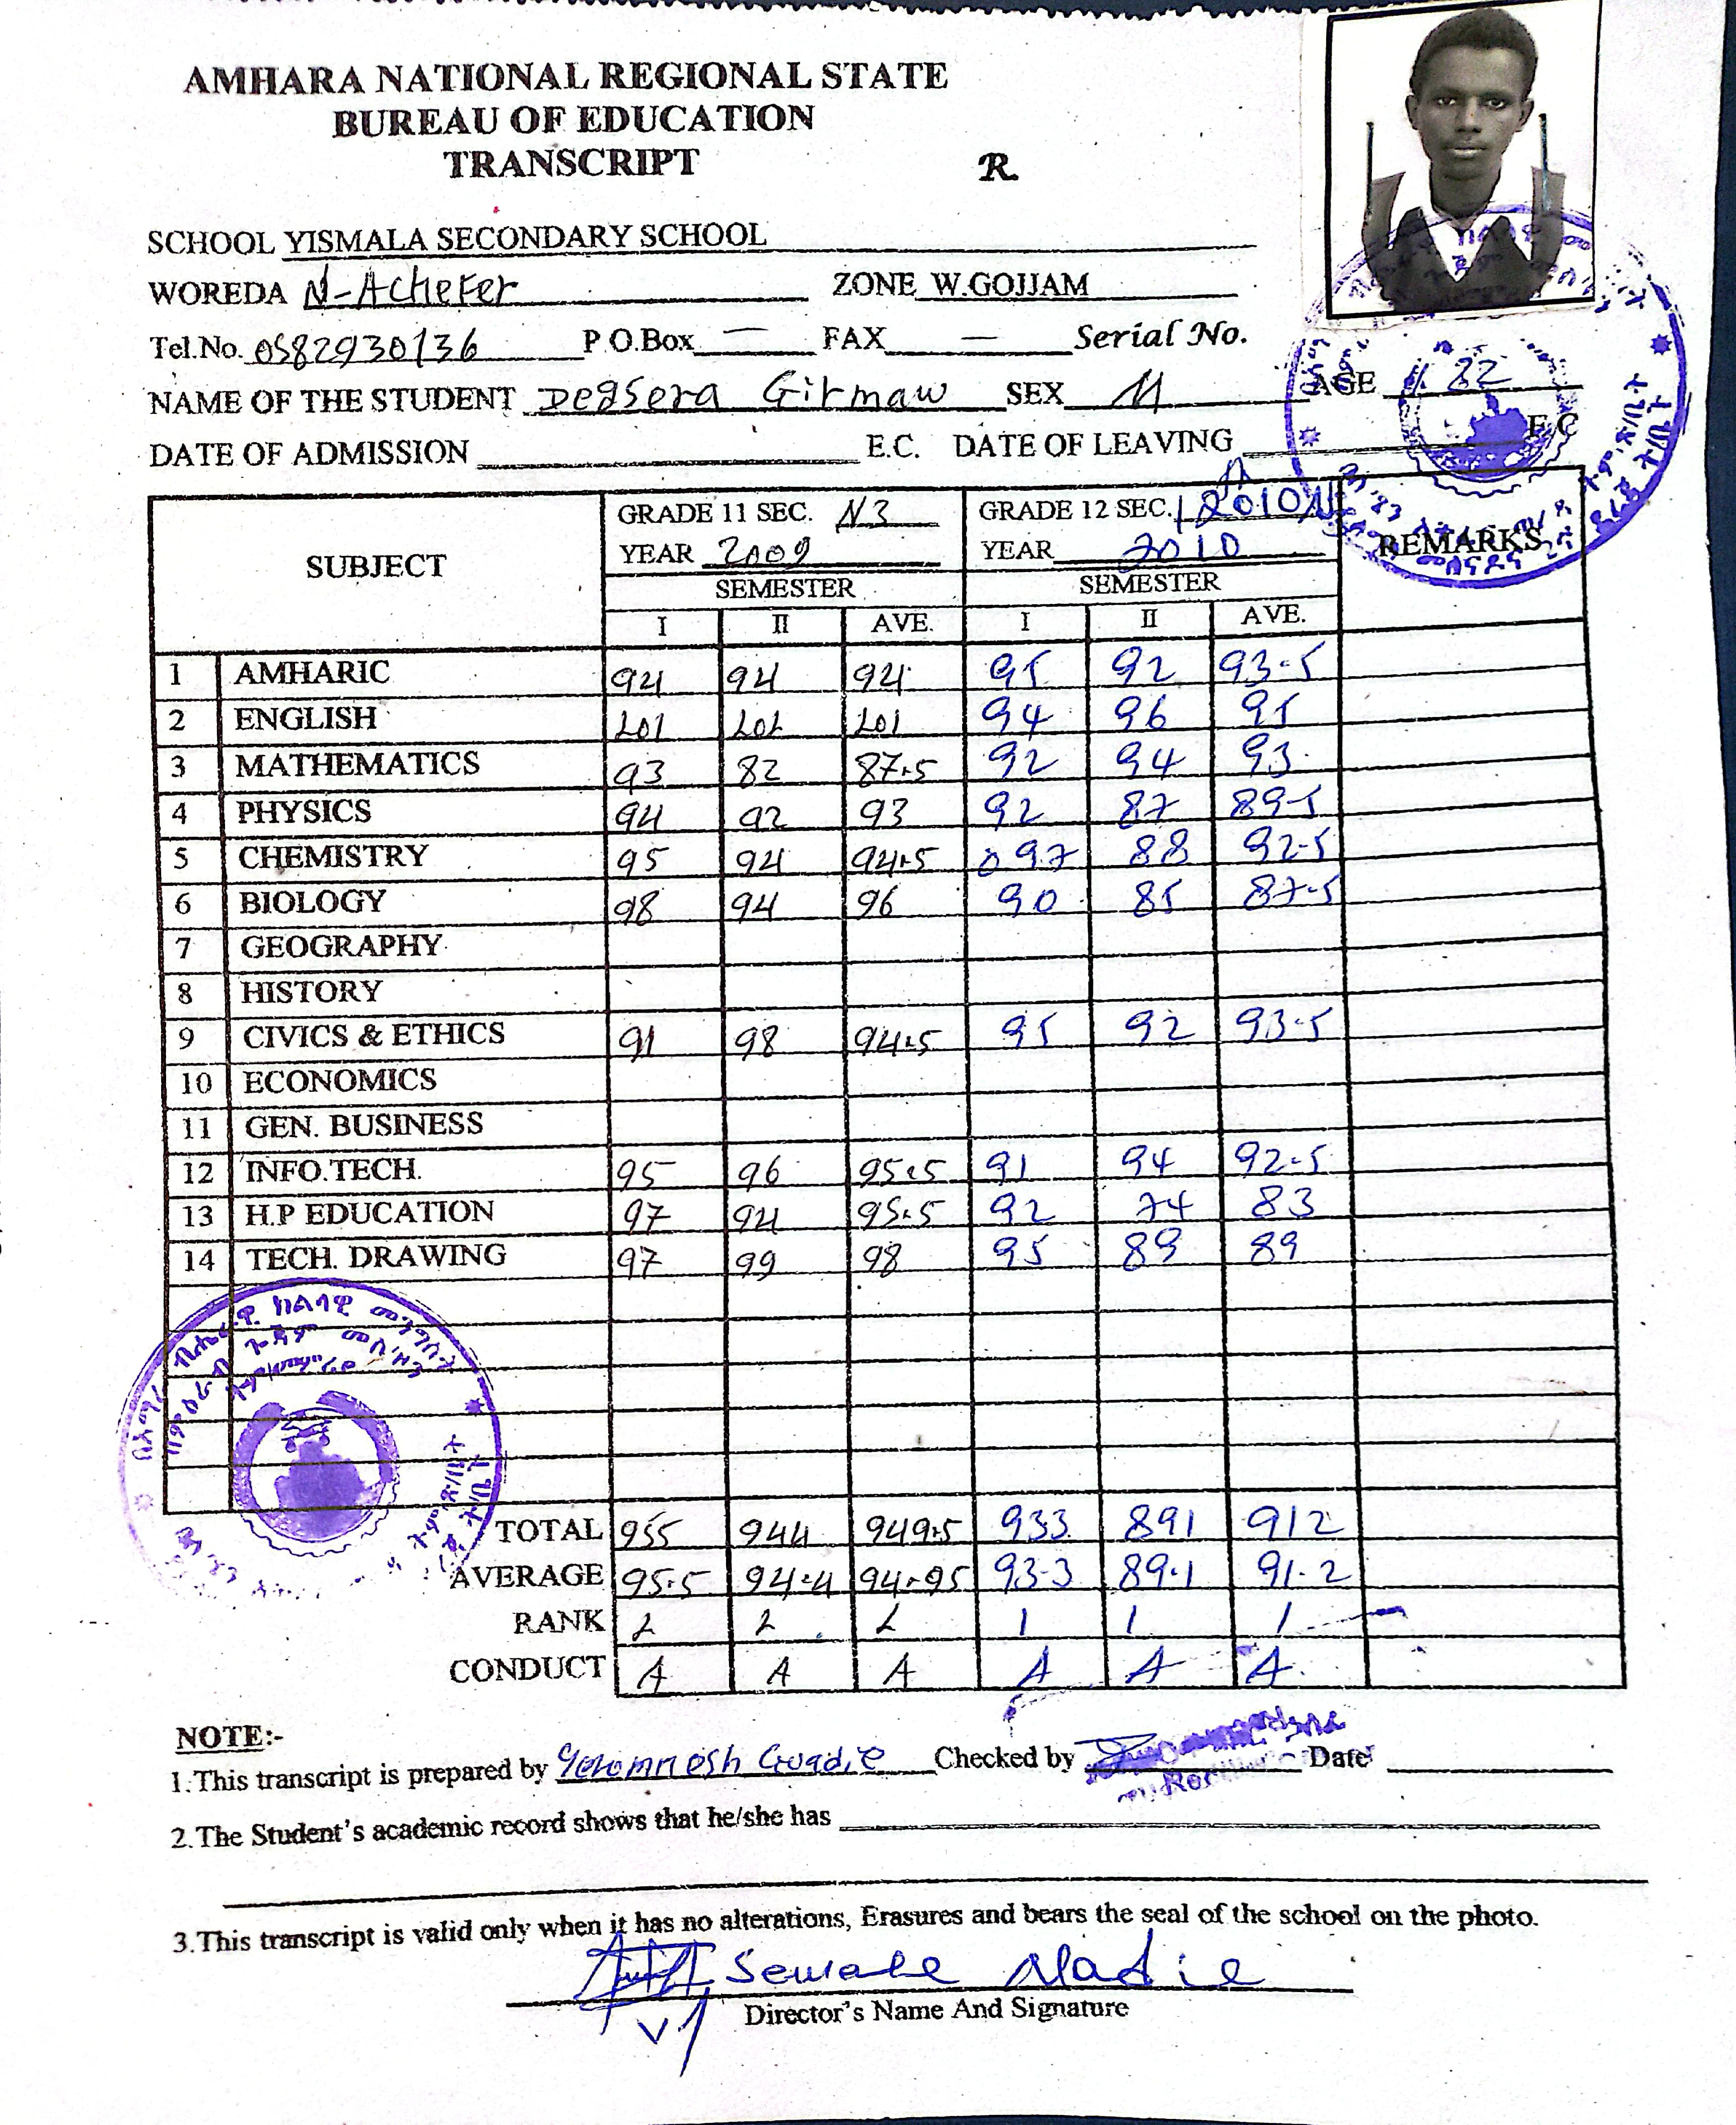 AMHARA NATIONAL REGIONAL STATE
BUREAU OF EDUCATION
TRANSCRIPT R.
SCHOOL YISMALA SECONDARY SCHOOL
WOREDA N-Achefer ZONE W.GOJJAM
Tel.No. 0582930136 P.O.Box — FAX — Serial No.
NAME OF THE STUDENT Degsera Girmaw SEX M AGE 22
DATE OF ADMISSION E.C. DATE OF LEAVING E.C
SUBJECT GRADE 11 SEC. N3 GRADE 12 SEC. REMARKS
YEAR 2009 YEAR 2010
SEMESTER SEMESTER
I II AVE. I II AVE.
1 AMHARIC 94 94 94 95 92 93.5
2 ENGLISH 101 101 101 94 96 95
3 MATHEMATICS 93 82 87.5 92 94 93
4 PHYSICS 94 92 93 92 87 89.5
5 CHEMISTRY 95 94 94.5 97 88 92.5
6 BIOLOGY 98 94 96 90 85 87.5
7 GEOGRAPHY
8 HISTORY
9 CIVICS & ETHICS 91 98 94.5 95 92 93.5
10 ECONOMICS
11 GEN. BUSINESS
12 INFO.TECH. 95 96 95.5 91 94 92.5
13 H.P EDUCATION 97 94 95.5 92 74 83
14 TECH. DRAWING 97 99 98 95 89 89
TOTAL 955 944 949.5 933 891 912
AVERAGE 95.5 94.4 94.95 93.3 89.1 91.2
RANK 2 2 2 1 1 1
CONDUCT A A A A A A
NOTE:-
1.This transcript is prepared by Guadie Checked by Date
2.The Student's academic record shows that he/she has
3.This transcript is valid only when it has no alterations, Erasures and bears the seal of the school on the photo.
Director's Name And Signature